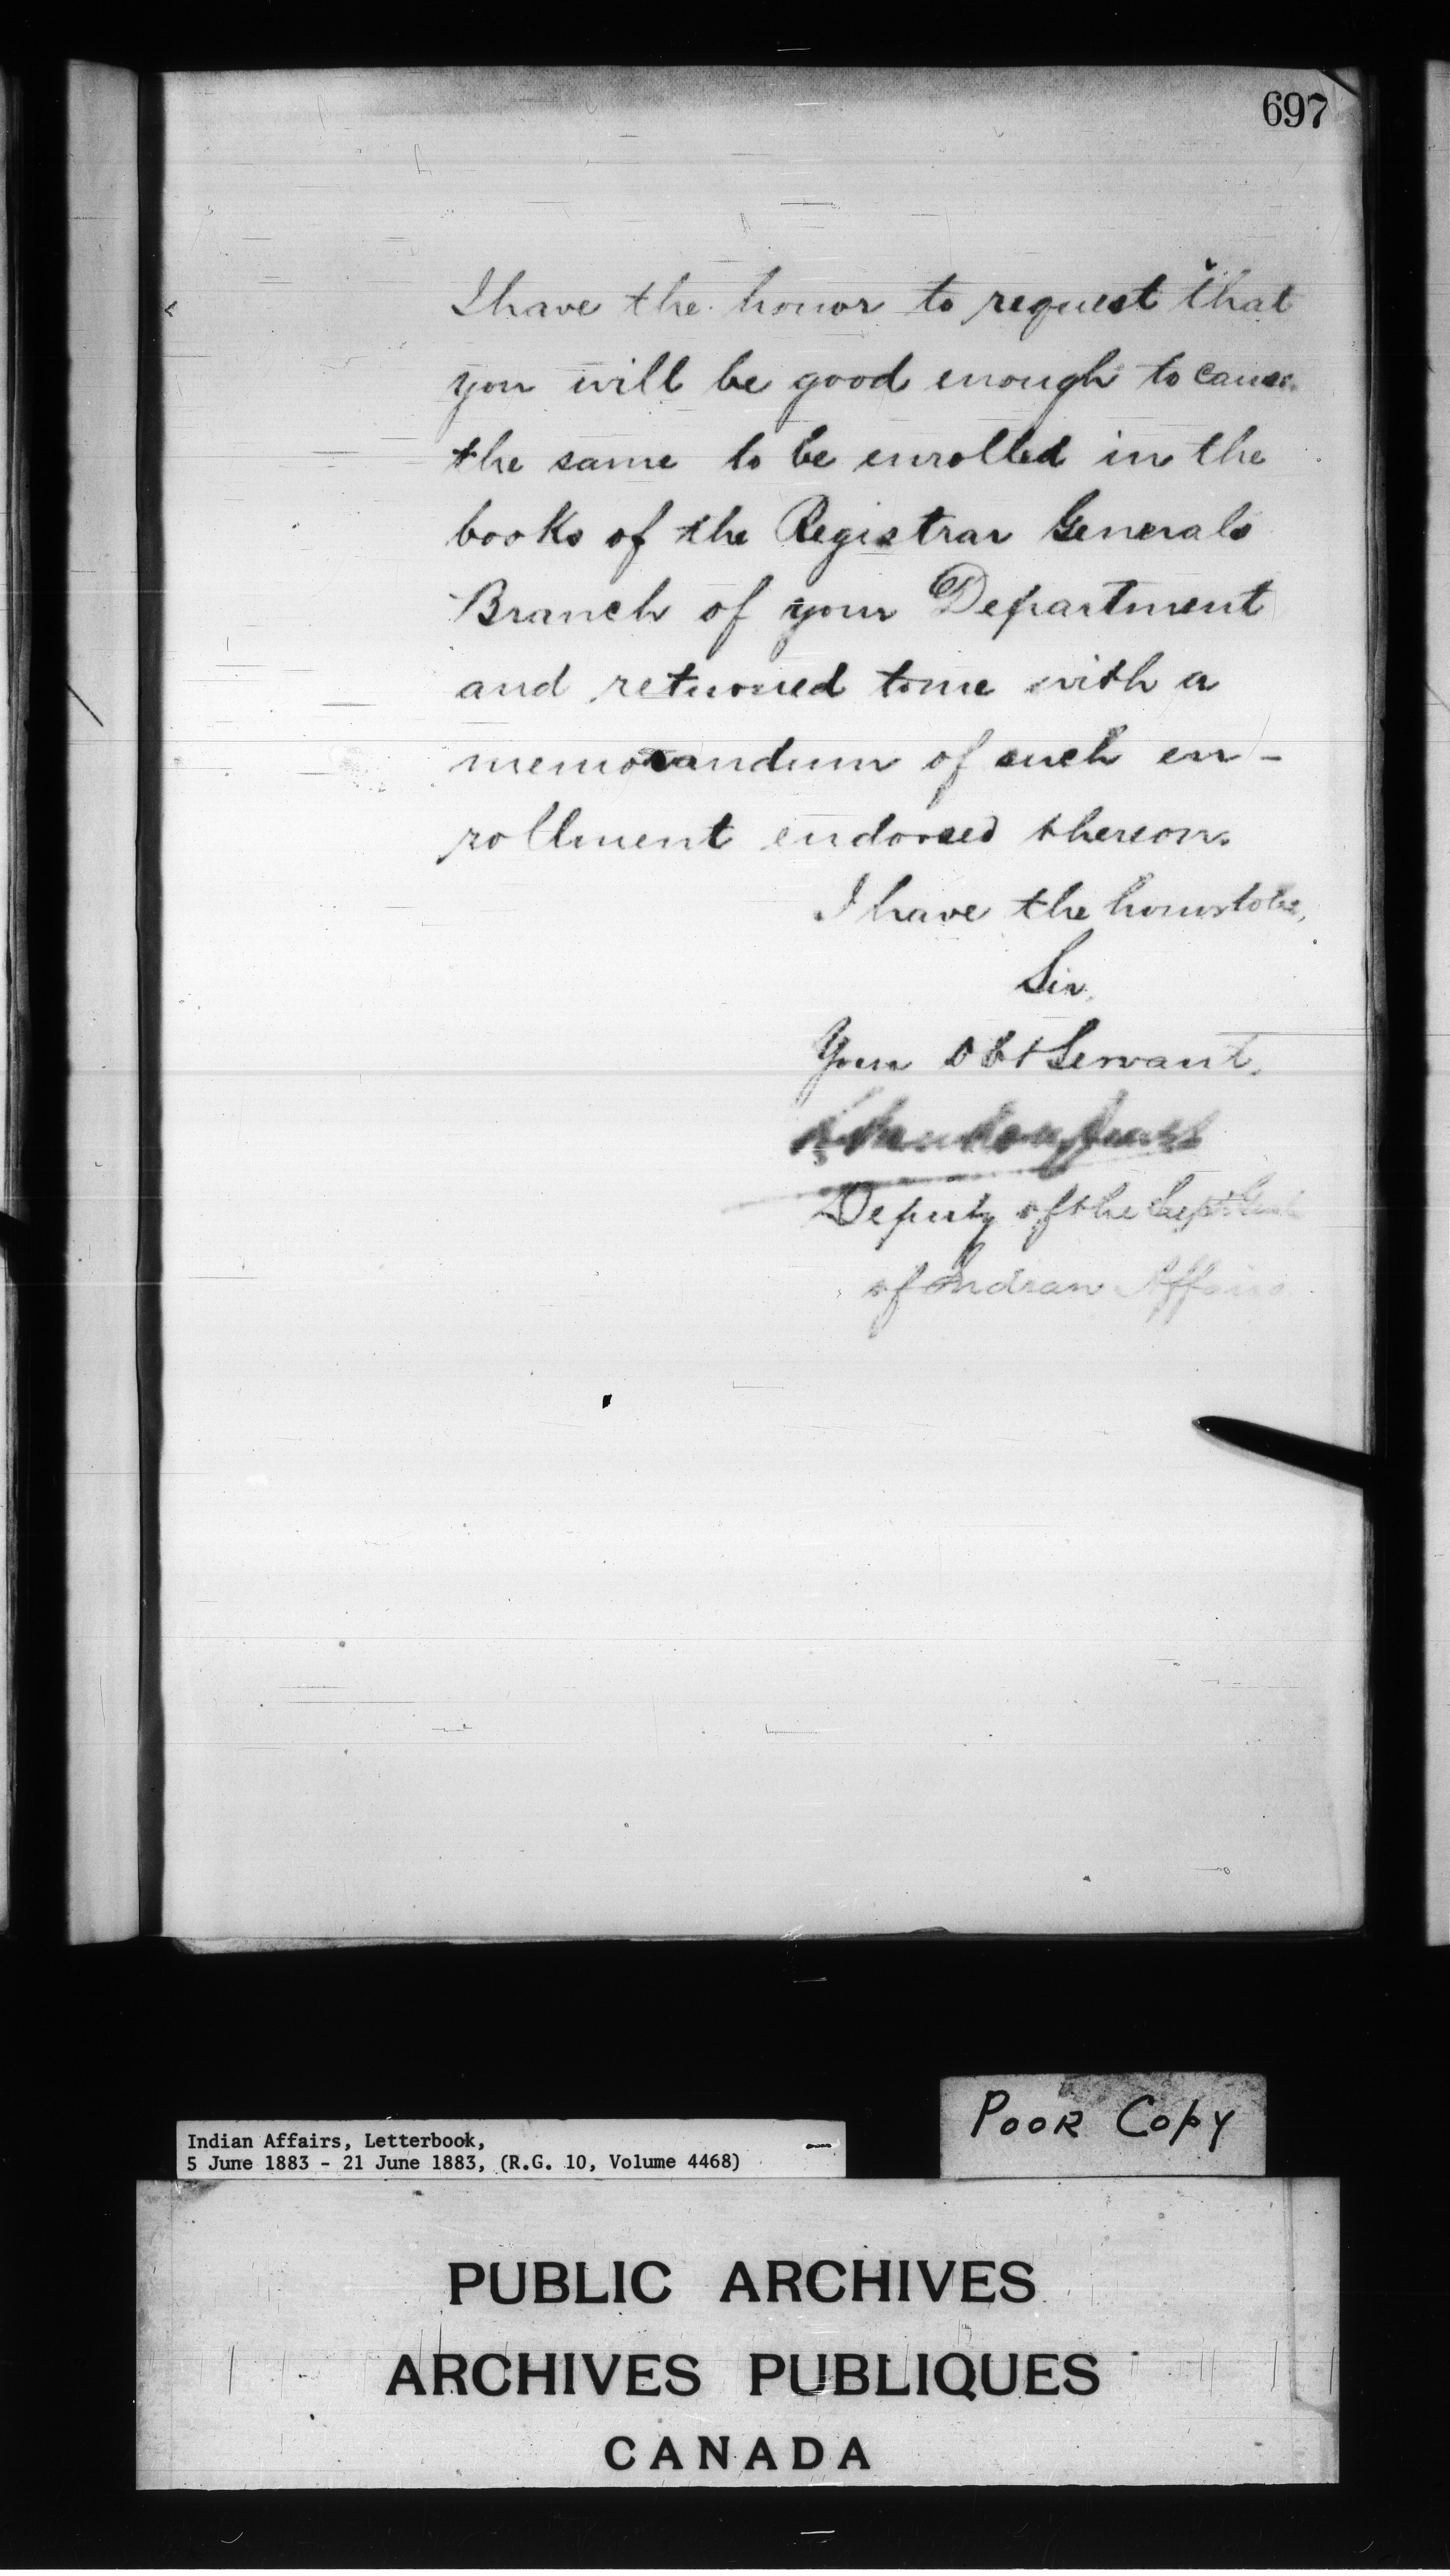 697
I have the honor to request that
you will be good enough to cause
the same to be enrolled in the
books of the Registrar Generals
Branch of your Department
and returned to me with a
memorandum of such en-
rollment endorsed thereon.
I have the honor to be,
Sir,
Your Obt Servant,
Deputy of the Supt Genl
of Indian Affairs
Poor Copy
Indian Affairs, Letterbook,
5 June 1883 - 21 June 1883, (R.G. 10, Volume 4468)
PUBLIC ARCHIVES
ARCHIVES PUBLIQUES
CANADA